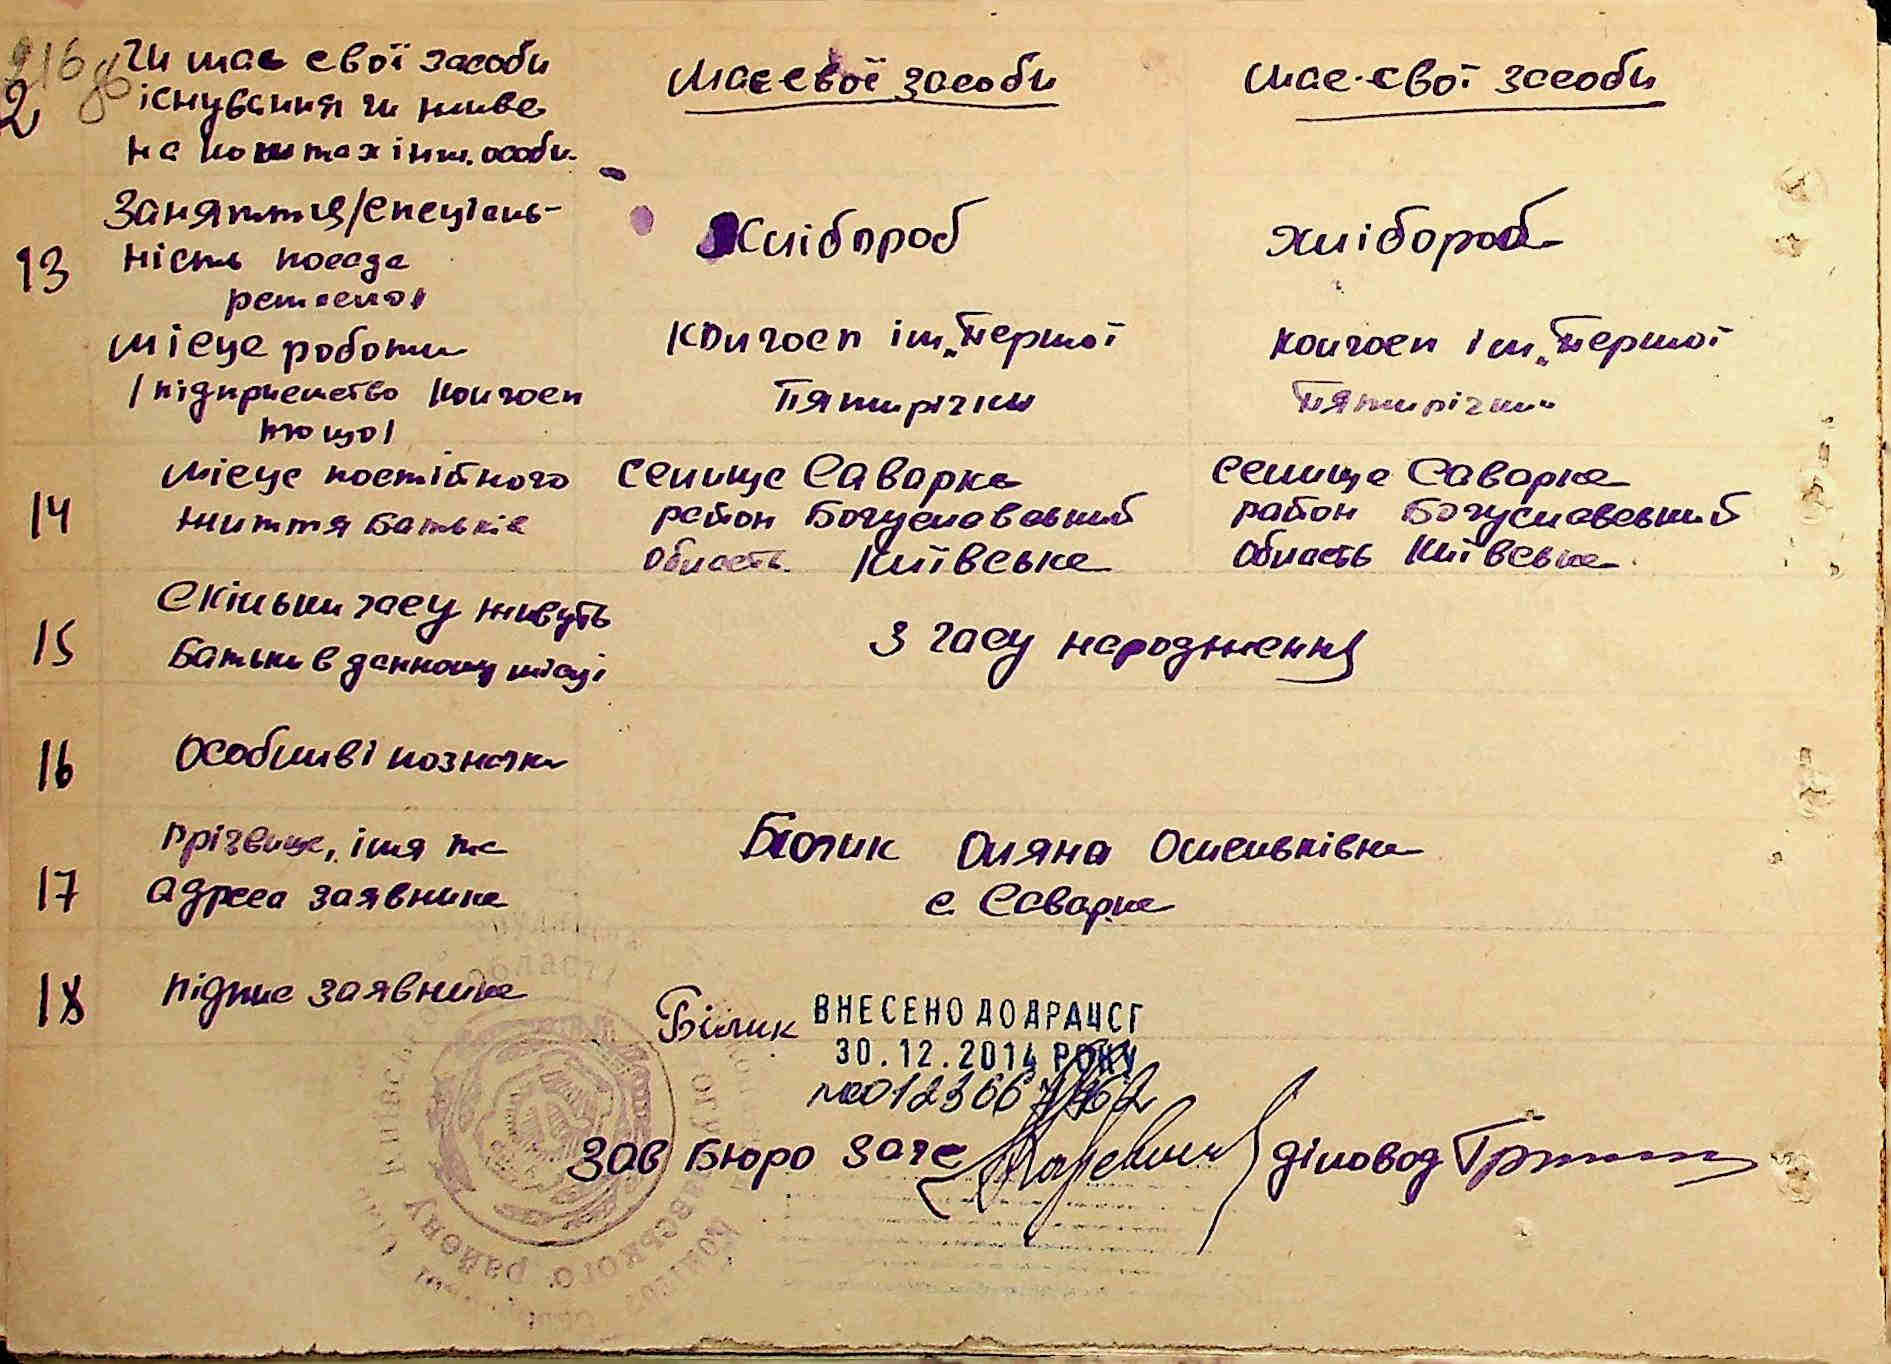 216 зв
2
Чи має свої засоби має свої засоби має свої засоби
існування чи живе
на коштах інш. особи.
13 Заняття /спеціаль- Хлібороб хлібороб
ність посада
ремесло/
місце роботи Колгосп ім. „Першої Колгосп ім. „Першої
/підприємство Колгосп Пятирічки Пятирічки
тощо/
14 місце постійного селище Саварка селище Саварка
життя батьків район Богуславський район Богуславський
область Київська область Київська
15 Скільки часу живуть З часу народження
батьки в данному місці
16 Особливі позначки
17 Прізвище, імя та Білик Оляна Омельківна
адреса заявника с. Саварка
18 підпис заявника Білик
ВНЕСЕНО ДО ДРАЦСГ
30.12.2014 РОКУ
Зав Бюро Загс діловод
області
Київської
району